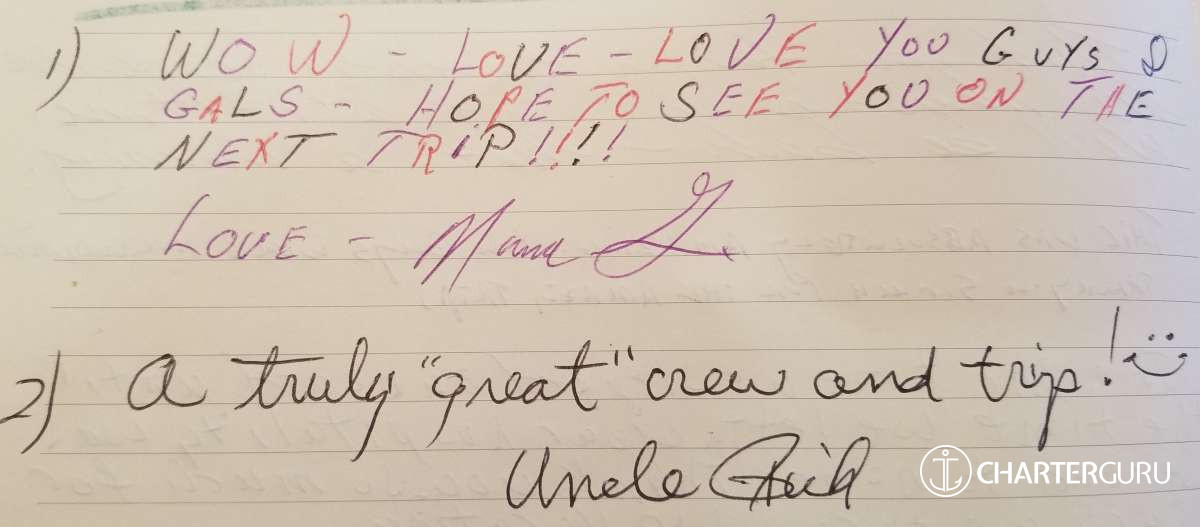 1) WOW - LOVE - LOVE YOU GUYS &
GALS - HOPE TO SEE YOU ON THE
NEXT TRIP!!!!
LOVE - Mama G
2) A truly "great" crew and trip! :)
Uncle Rich
CHARTERGURU